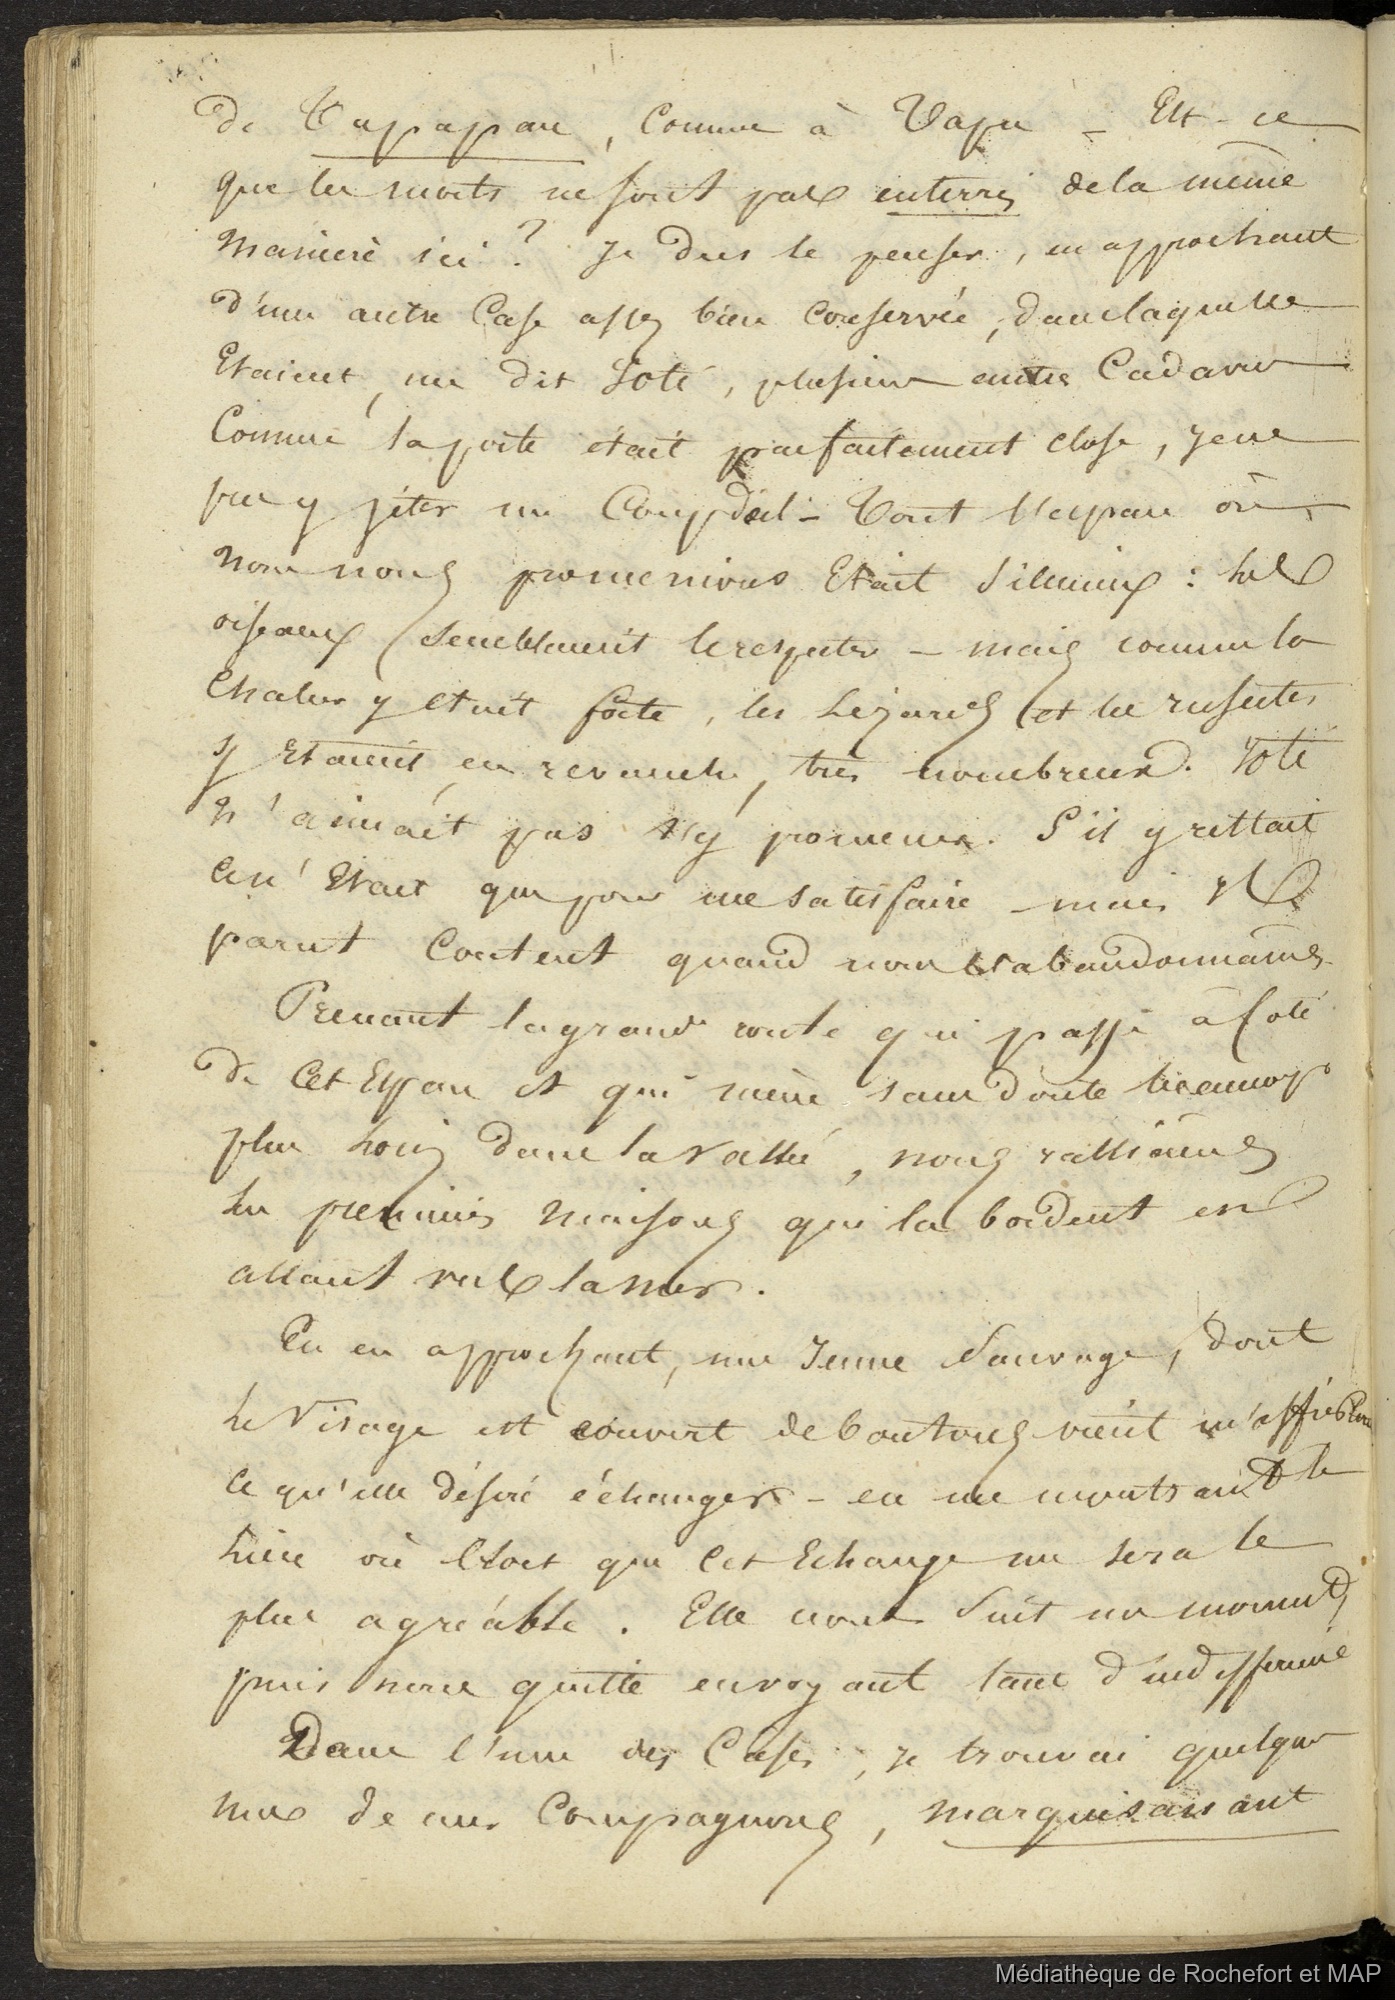 de Tupapau, Comme à Vapu - Est-ce
que les morts ne sont pas enterrés de la même
manière ici ? Je dus le penser, en approchant
d'une autre Case assez bien conservée, dans laquelle
Etaient, me dit Toté, plusieurs autres Cadavres
Comme la porte était parfaitement close, je ne
pus y jeter un Coup d'œil - Tout l'espace où
nous nous promenions Etait silencieux : les
oiseaux semblaient le respecter - mais comme la
chaleur y était forte, les Lézards et les insectes,
y étaient, en revanche, très nombreux. Toté
n'aimait pas s'y promener. S'il y restait
ce n'Etait que pour me satisfaire - mais il
parut Content quand nous l'abandonnâmes.
Prenant la grande route qui passe à Coté
de Cet Espace et qui mène sans doute beaucoup
plus Loin dans la Vallée, nous ralliâmes
les premières maisons qui la bordent en
allant vers la mer.
En en approchant, une Jeune Sauvage, dont
le Visage est couvert de boutons vient m'offrir
ce qu'elle désire échanger - en me montrant le
Lieu où Elle croit que Cet Echange me sera le
plus agréable. Elle nous suit un moment,
puis nous quitte en voyant tant d'indifférence
Dans l'une des Cases, je trouvai quelques
uns de mes Compagnons, marquisaisant
Médiathèque de Rochefort et MAP